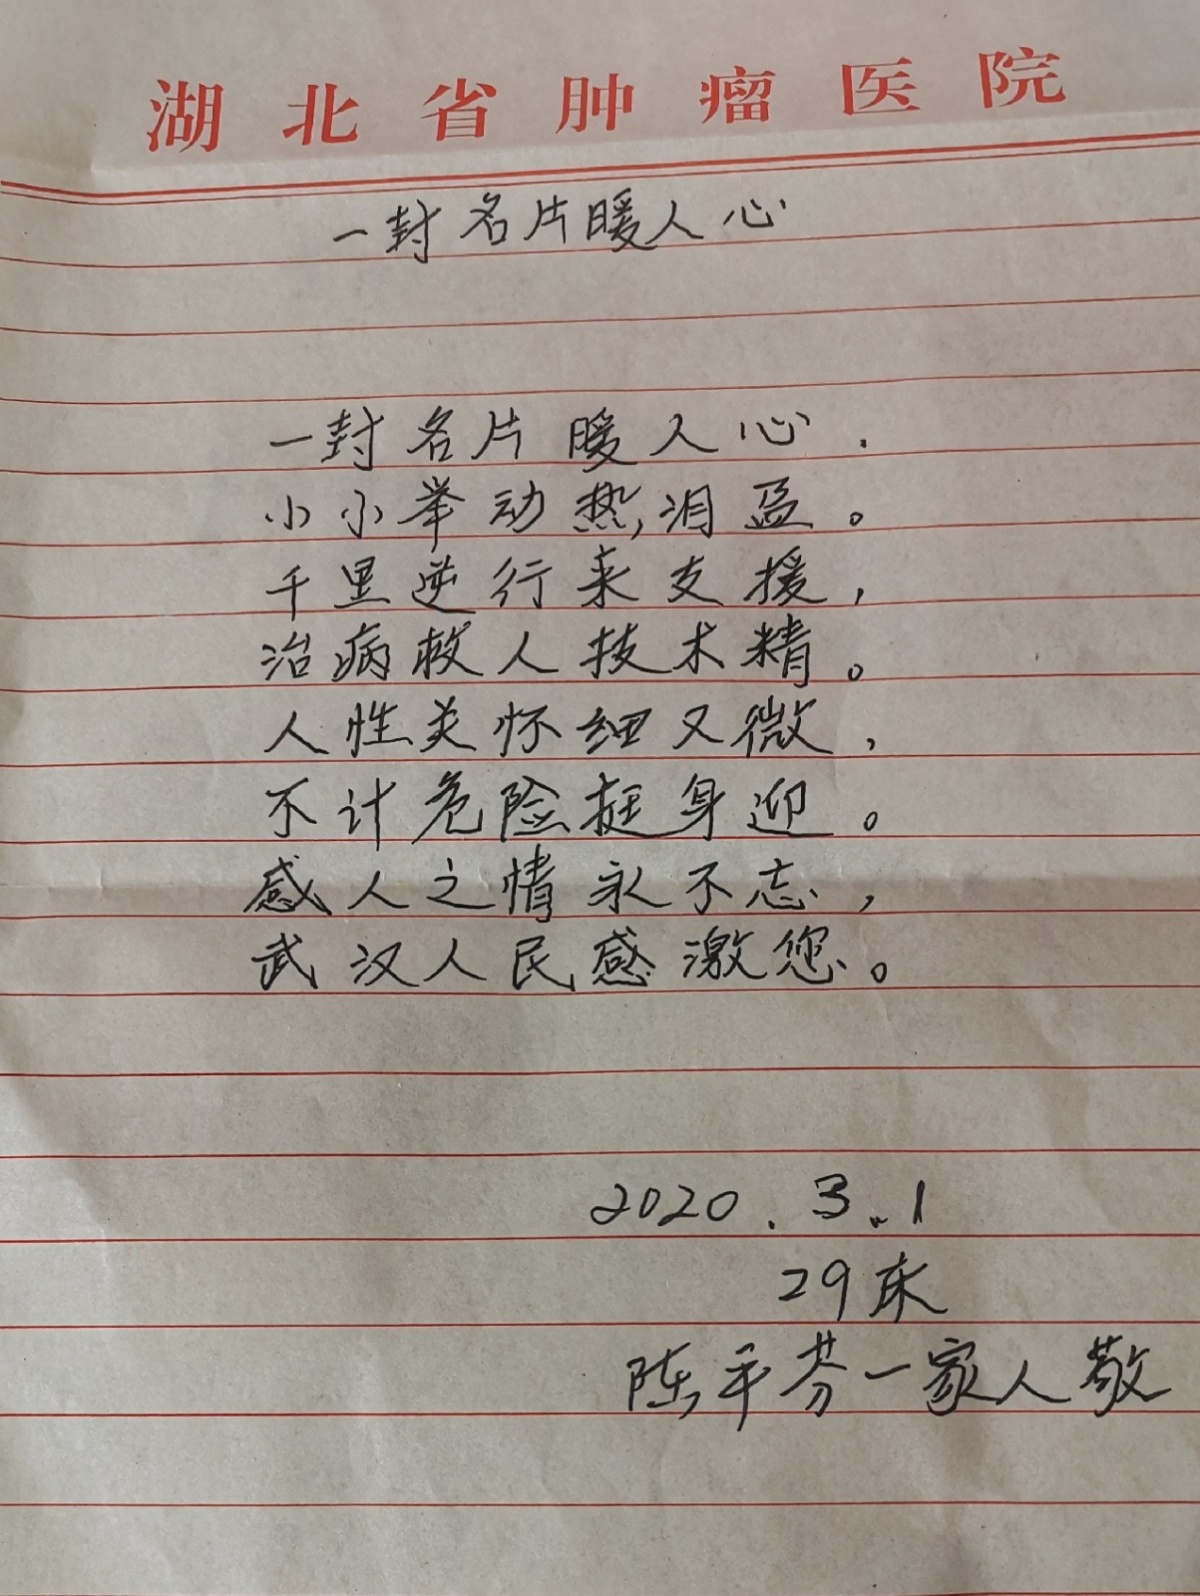 湖北省肿瘤医院
一封名片暖人心
一封名片暖人心.
小小举动热泪盈。
千里逆行来支援,
治病救人技术精。
人性关怀细又微,
不计危险挺身迎。
感人之情永不忘,
武汉人民感激您。
2020.3.1
29床
陈平芬一家人敬